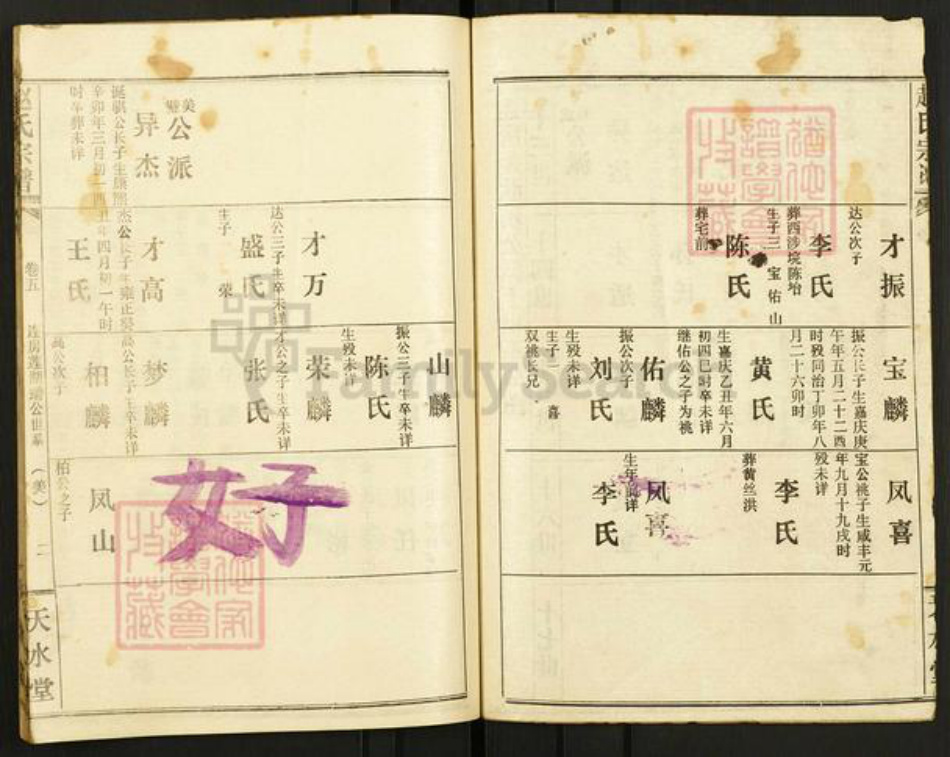 才振
达公次子
李氏
葬西涉境陈坮
生子三 宝佑山
陈氏
葬宅前
宝麟
振公长子生嘉庆庚
午年五月二十二酉
时殁同治丁卯年八
月二十六卯时
黄氏
生嘉庆乙丑年六月
初四巳时卒未详
继佑公之子为祧
佑麟
振公次子
刘氏
生殁未详
生子一 喜
双祧长兄
凤喜
宝公祧子生咸丰元
年九月十九戌时
殁未详
李氏
葬黄丝洪
凤喜
生年 详
李氏
美璧公派
异杰
诞骐公长子生康熙
辛卯年三月初一酉
时卒葬未详
才万
达公三子生卒未详
盛氏
生子一 荣
才高
杰公长子生雍正癸
丑年四月初一午时
王氏
山麟
振公三子生卒未详
陈氏
生殁未
荣麟
才公之子生卒未详
张氏
梦麟
高公长子生卒未详
柏麟
高公次子
凤山
柏公之子
好
赵氏宗谱
卷五
连房 公世系
(美)
二
天水堂
FamilySearch